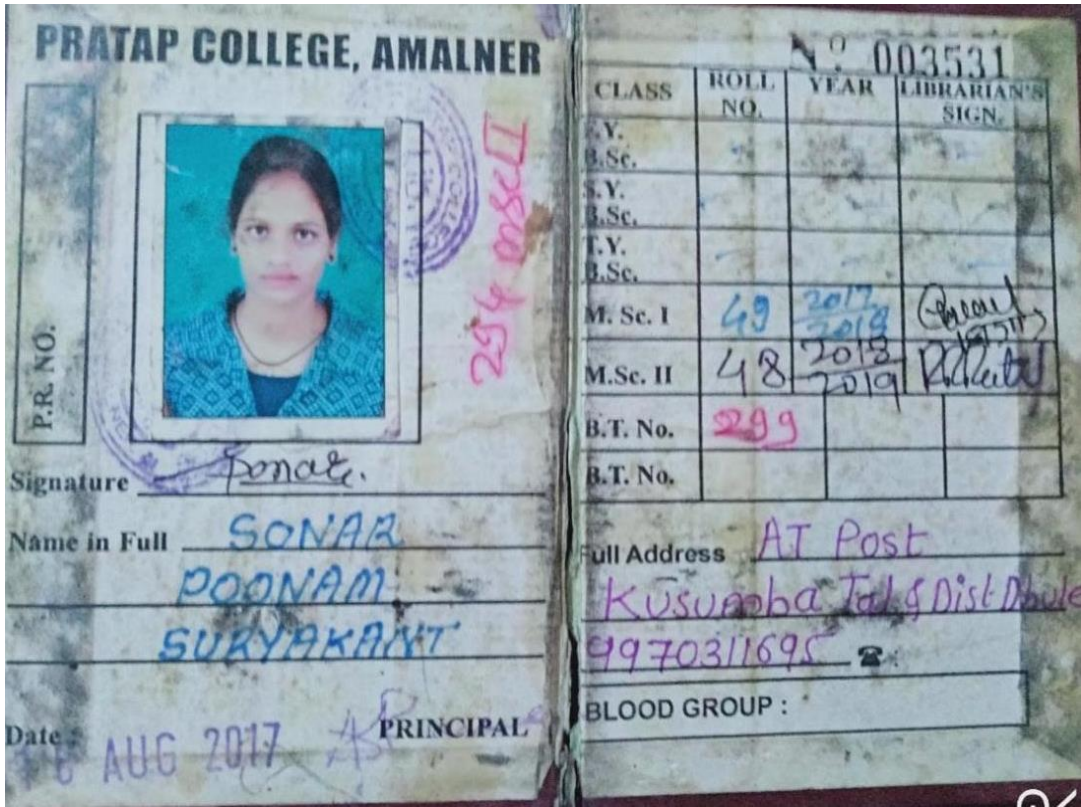 PRATAP COLLEGE, AMALNER
P.R. NO.
Signature Sonar.
Name in Full SONAR
POONAM
SURYAKANT
Date AUG 2017 PRINCIPAL
No 003531
CLASS ROLL NO. YEAR LIBRARIAN'S SIGN.
F.Y. B.Sc.
S.Y. B.Sc.
T.Y. B.Sc.
M. Sc. I 49 2017 2018
M.Sc. II 48 2018 2019
B.T. No. 299
B.T. No.
Full Address AT Post
Kusumba Tal & Dist Dhule
9970311695
BLOOD GROUP :